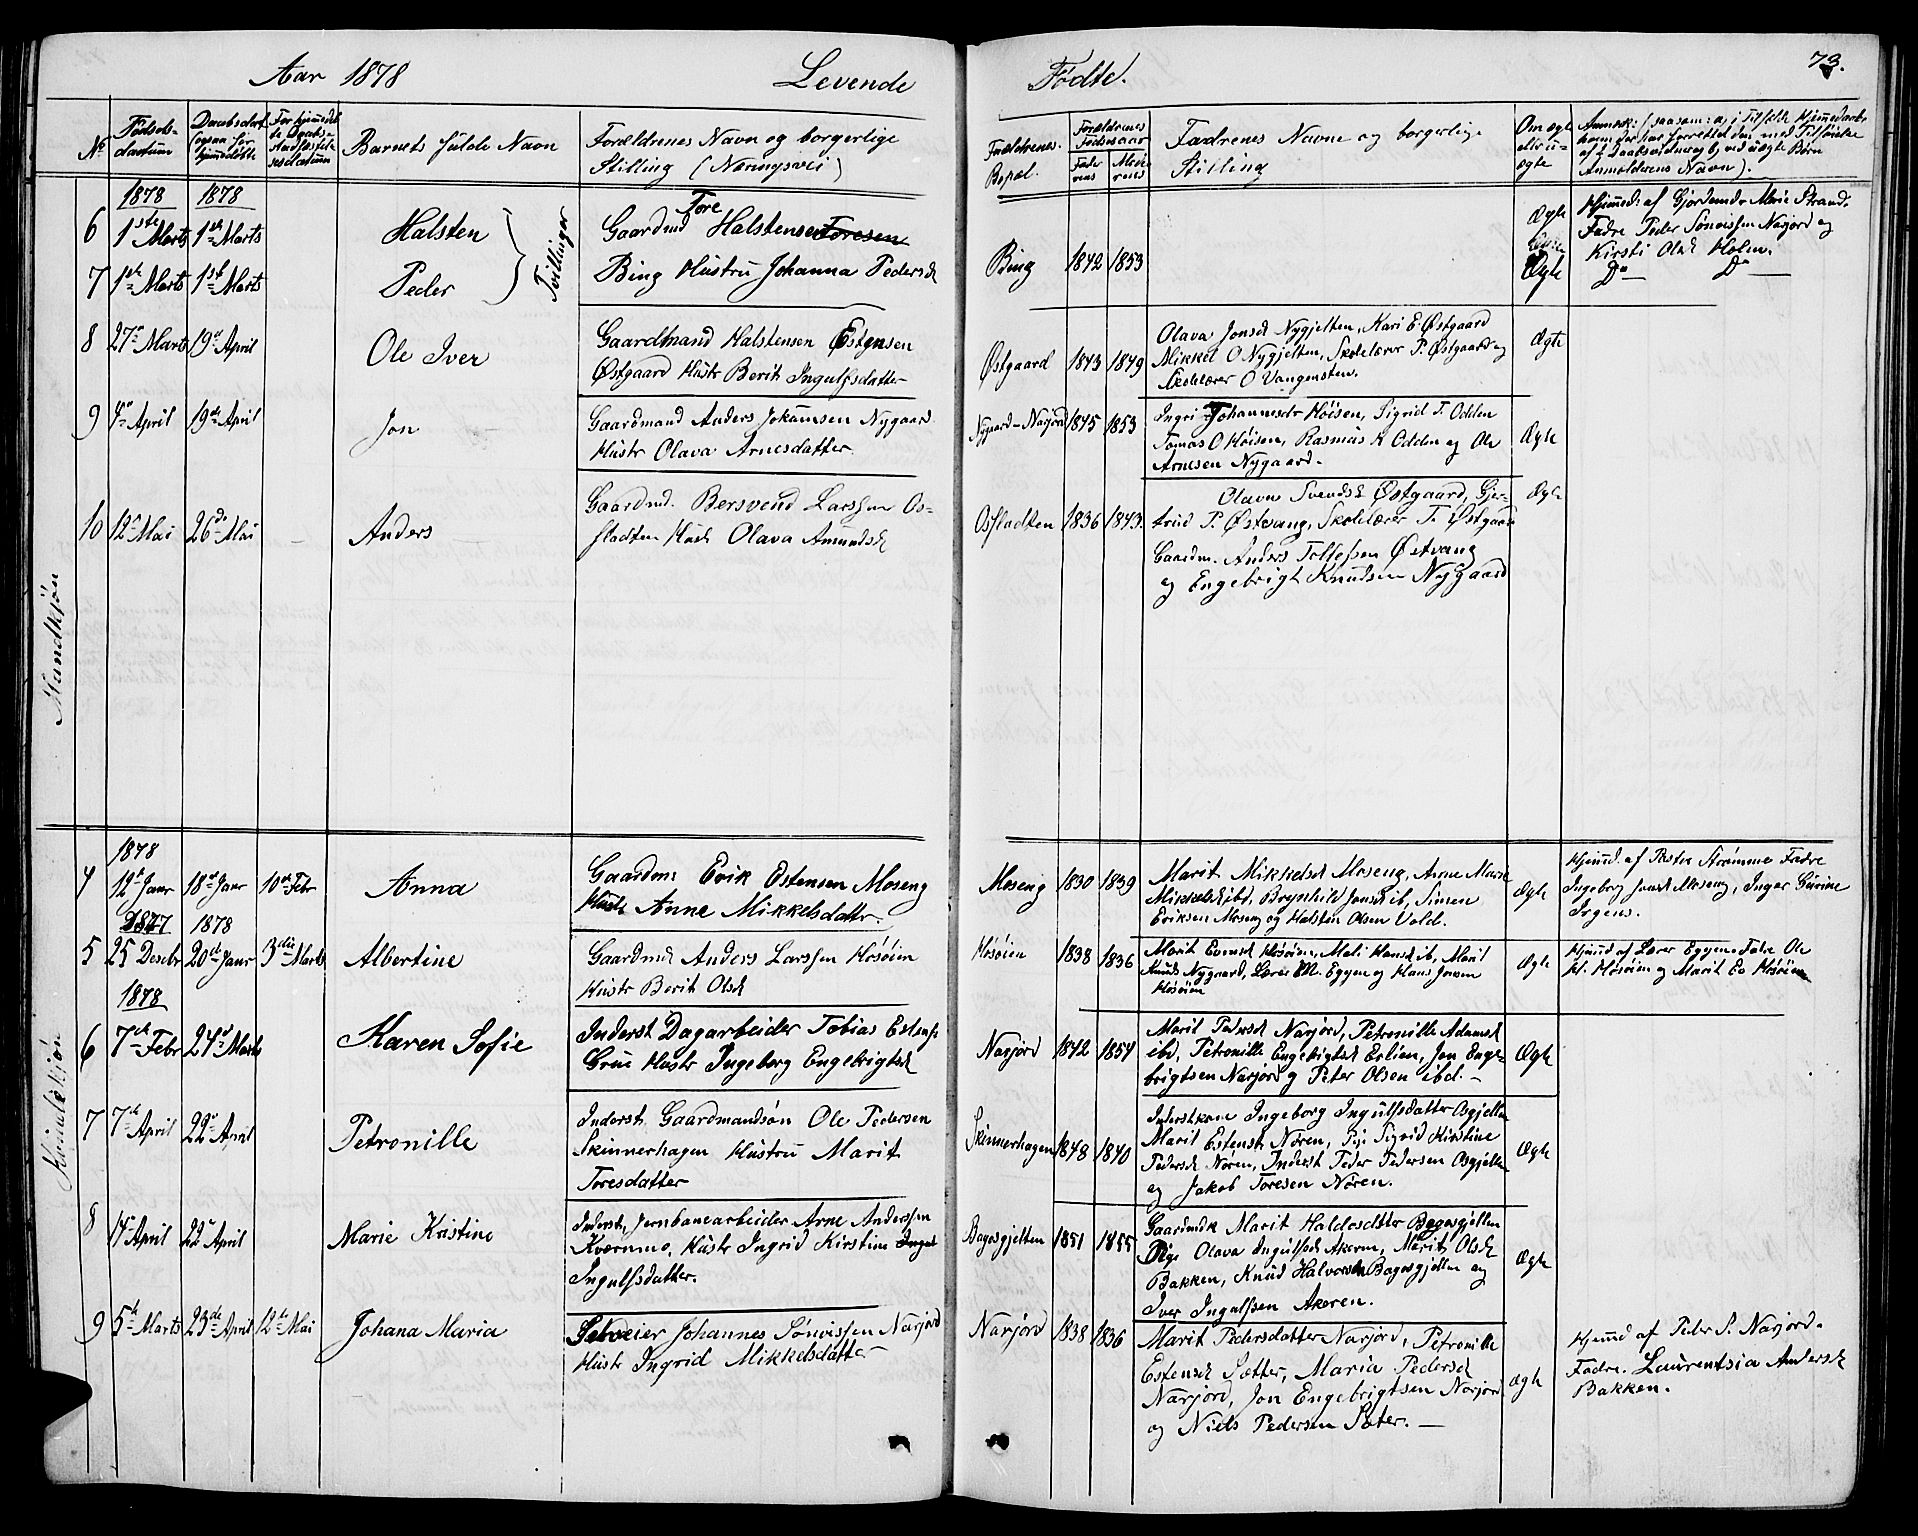 Aar 1878 Levende Fødte. 73.
No
Fødsels-
datum
Daabsdat.
(ogsaa for
hjemmedøbte
For hjemmedøb-
te Daabs-
Barnets fulde Navn
Forældrenes Navn og borgerlige
Stilling (Næringsvei)
Forældrenes
Bopæl.
Forældrenes
Fødselsaar
Fade-
rens
Mode-
rens
Faddrenes Navne og borgerlige
Stilling
Om ægte
eller u-
ægte
Anmeldérens Navn).
Mandkjøn
1878 1878
6 1ste Marts 1ste Marts Halsten
Tvillinger
Tore
Gaardmd Halstensen Toresen
Bing 1842 1853
Ægte
Hjemmed: af Gjordemdr Marie Strand.
Fadre Peder Simenssen Narjord og
Kirsti Olsd Holm.
7 1ste Marts 1ste Marts Peder
Bing Hustru Johanna Pedersd
Ægte Do — Do —
8 27de Marts 19de April Ole Iver
Gaardmand Halstensen Østensen
Østgaard Hustr Berit Ingulfsdatter
Østgaard 1843 1849
Olava Jonsd Nygjelten, Kari E. Østgaard
Mikkel O Nygjelten, Skolelærer P. Østgaard og
Skolelærer O Vangensten.
Ægte
9 4de April 19de April Jon
Gaardmand Anders Jokumsen Nygaard
Hustr Olava Arnesdatter
Nygaard-Narjord 1845 1853
Ingri Johannesdr Høisen, Sigrid T. Odden
Tomas O Høisen, Rasmus K Odden og Ole
Arnesen Nygaard.
Ægte
10 12te Mai 26de Mai - Anders
Gaardmd. Bersvend Larssen Os-
fladten Hustr Olava Amundsd
Osfladten 1836 1843.
Olava Svendsd Østgaard, Gjer-
trud P. Østvang, Skolelærer T. Østgaard
Gaardm. Anders Tollefsen Østvang
og Engebrigt Knudsen Nygaard
Ægte
Kvindekjøn
1878
4 12te Janr 18de Janr 10de Febr Anna
Gaardm: Erik Estensen Moseng
Hustr Anne Mikkelsdattr.
Moseng 1830 1839
Marit Mikkelsd Moseng, Anne Marie
Mikkelsd ibd, Brynhild Jonsd ib, Simen
Eriksen Moseng og Halsten Olsen Vold.
Ægte
Hjemmd. af Pastor Strømme Fadre
Ingeborg Jonsd Moseng, Inger Gurine
Irgens.
1877 1878
5 25 Desebr 20de Janr 3die Marts Albertine
Gaardmd Anders Larssen Høsøien
Hustr Berit Olsd
Høsøien 1838 1836
Marit Evensd Høsøien, Mali Hansd ib, Marit
Knuds Nygaard, Lærer M. Eggen og Hans Jonsen
Høsøien
Ægte
Hjemmd af Lærer Eggen Fadre Ole
H. Høsøien og Marit Ev Høsøien
1878
6 7de Febr 24de Marts Karen Sofie
Inderst Dagarbeider Tobias Estens
Grue Hustr Ingeborg Engebrigtsd
Narjord 1842 1854
Marit Pedersd Narjord, Petronille Adamsd
ibd, Petronille Engebrigtsd Erlien, Jon Enge-
brigtsen Narjord og Peter Olsen ibd. -
Ægte
7 7de April 22de April Petronille
Inderst Gaardmandssøn Ole Pedersen
Skinnerhagen Hustru Marit
Toresdatter
Skinnerhagen 1848 1840
Inderstkone Ingeborg Ingulfsdatter Osgjelten
Marit Estensd Nøren, Pige Sigrid Kirstine
Pedersd Nøren, Inderst Peder Pedersen Osgjelten
og Jakob Toresen Nøren.
Ægte
8 14de April 22de April Marie Kristine
Inderst, Jernbanearbeider Arne Anderssen
Kværnmo, Hustr Ingrid Kirstine Ingul
Ingulfsdatter.
Bagosgjelten 1851 1855
Gaardmdk Marit Haldosdtter Bagosgjelten
Pige Olava Ingulfsd Akeren, Marit Olsd
Bakken, Knud Halvorsen Bagosgjelten og
Iver Ingulfsen Akeren.
Ægte
9 5te Marts 23de April 12te Mai Johana Maria
Selveier Johannes Simenssen Narjord
Hustr Ingrid Mikkelsdatter -
Narjord 1838 1836
Marit Pedersdatter Narjord, Petronille
Estensd Sætter, Maria Pedersd
Narjord, Jon Engebrigtsen Narjord
og Niels Pedersen Sæter. —
Ægte
Hjemmd af Peder S. Narjord.
Fadre. Laurentsia Andersd
Bakken.